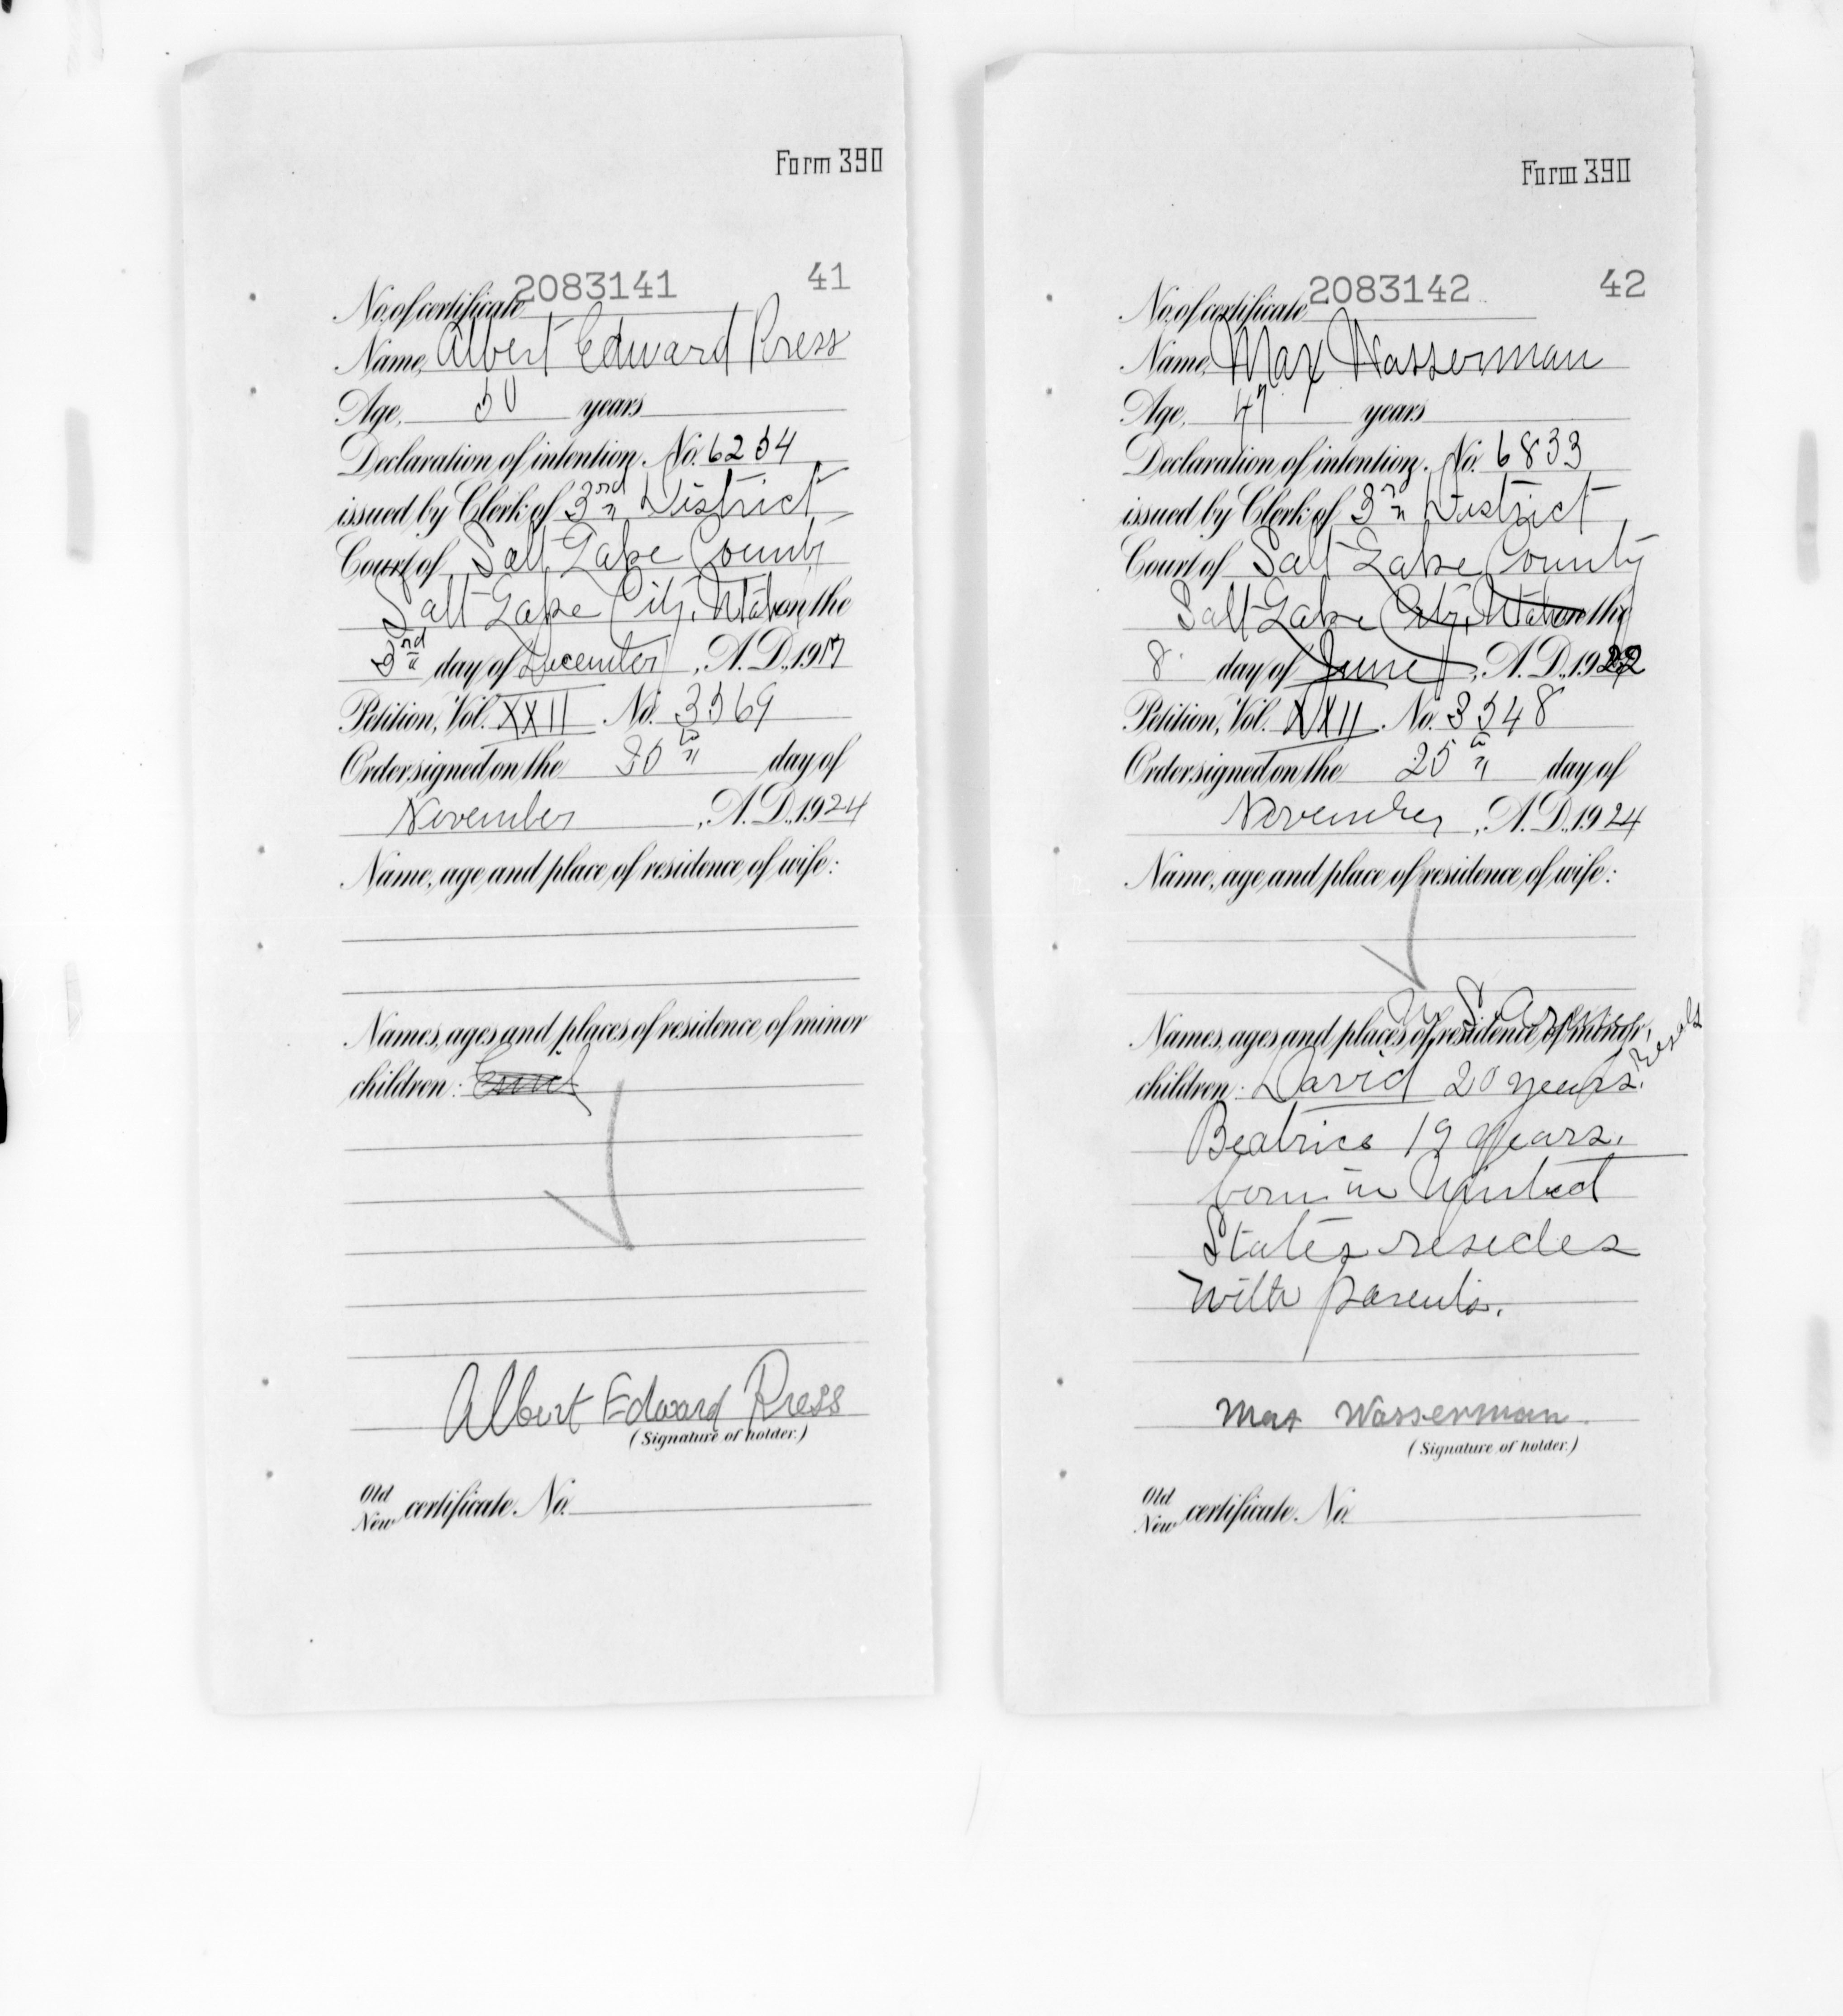 Form 390
2083141 41
No. of certificate
Name, Albert Edward Press
Age, 50 years
Declaration of intention, No. 6254
issued by Clerk of 3rd District
Court of Salt Lake County
Salt Lake City, Utah on the
3rd day of December, A. D., 1917
Petition, Vol. XXII No. 3569
Order signed on the day of
November, A. D., 1924
Name, age, and place of residence of wife:
Names, ages and places of residence of minor
children:
Albert Edward Press
(Signature of holder.)
Old
New certificate, No.
Form 390
2083142 42
No. of certificate
Name, Max Wasserman
Age, 47 years
Declaration of intention, No. 6833
issued by Clerk of 3rd District
Court of Salt Lake County
Salt Lake City, Utah on the
8 day of June, A. D., 1922
Petition, Vol. XXII. No. 3548
Order signed on the 25 day of
November, A. D., 1924
Name, age, and place of residence of wife:
Names, ages and places of residence of minor
children: David 20 years.
Beatrice 19 years.
born in United
States resides
with parents.
Max Wasserman
(Signature of holder.)
Old
New certificate, No.